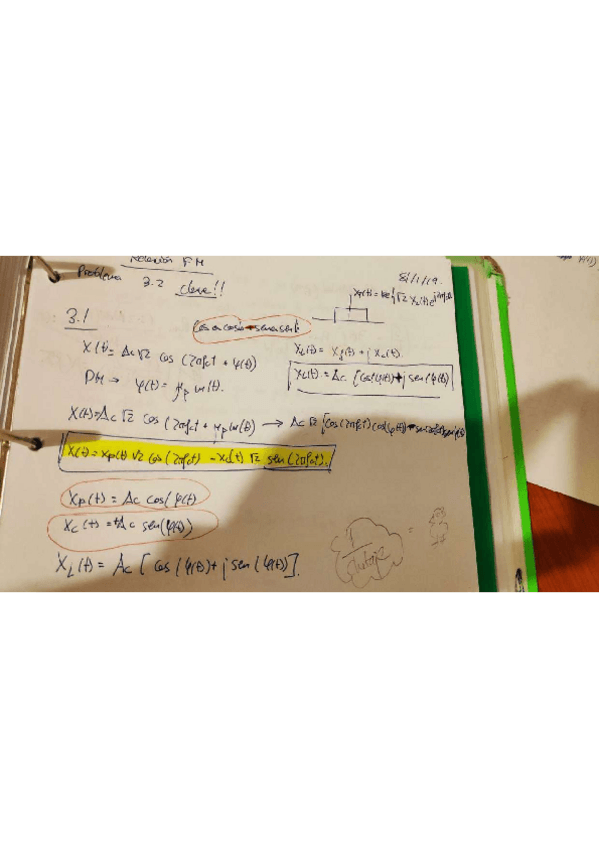 Relación FM
Problema 3.2 clave!!
8/1/19
3.1
cosa cosb - sena senb
X(t) = Ac √2 cos (2πfct + φ(t))
XL(t) = Xf(t) + j Xc(t).
PM → φ(t) = μp m(t).
XL(t) = Ac [cos(φ(t)) + j sen(φ(t))
X(t) = Ac √2 cos (2πfct + μp m(t)) → Ac √2 [cos(2πfct) cos(φ(t))
X(t) = Xp(t) √2 cos (2πfct) - Xc(t) √2 sen (2πfct).
Xp(t) = Ac cos(φ(t)
Xc(t) = +Ac sen(φ(t))
XL(t) = Ac [cos(φ(t)) + j sen(φ(t))].